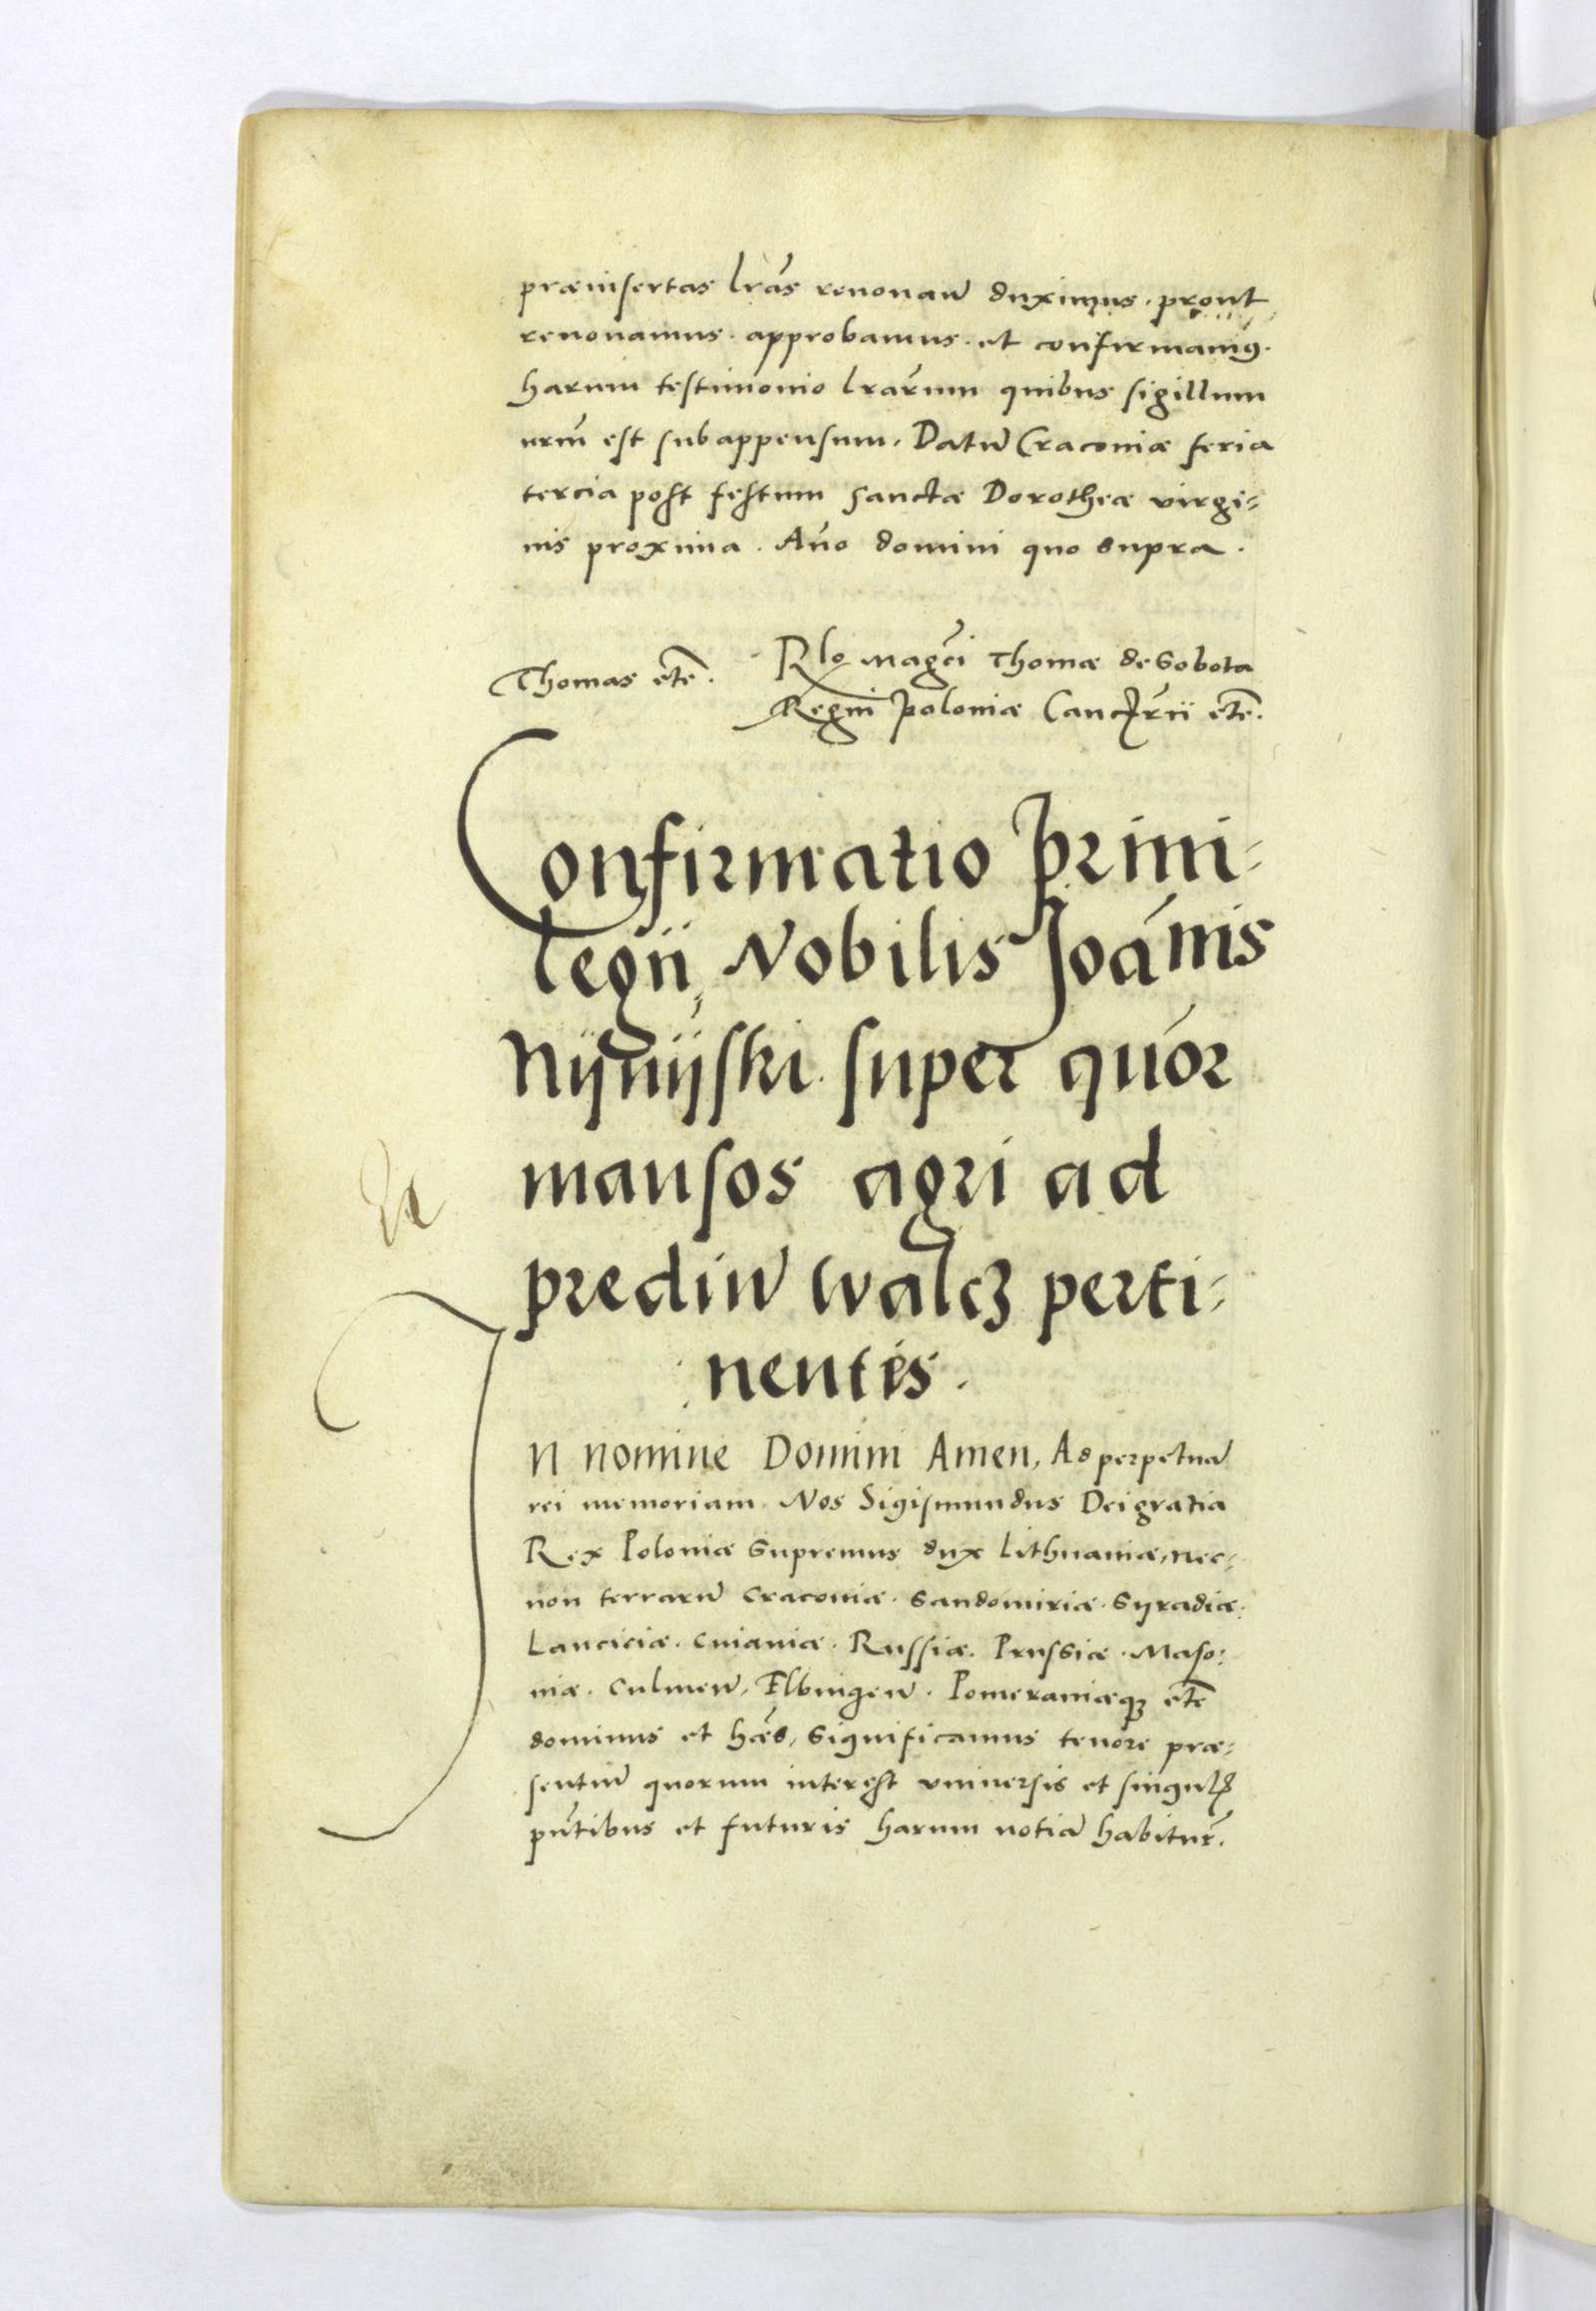 præinsertas lrãs renouan̄ duximus. prout
renouamus. approbamus. et confirmam9.
harum testimonio lrãrum quibus sigillum
nrm̄ est subappensum. Datū Cracouiæ feria
tercia post festum sanctæ Dorotheæ virgi-
nis proxima. Año domini quo supra.
Thomas etc̄.
Rlo magc̄i Thomæ de Sobota
Regni Poloniæ Canclr̄ii etc̄.
Confirmatio Priui-
legii, Nobilis Joãnnis
Nijnijski. super quãor
mansos agri ad
prediū walcz perti-
nentes.
In nomine Domini Amen, Ad perpetuā
rei memoriam. Nos Sigismundus Dei gratia
Rex Poloniæ Supremus dux Lithuaniæ, nec-
non terrarū Cracouiæ. Sandomiriæ. Syradiæ.
Lanciciæ. Cuiauiæ. Russiæ. Prussiæ. Maso-
uiæ. Culmen̄, Elbingen̄. Pomeraniæq3 etc̄
dominus et hæs̄, Significamus tenore præ-
sentiū quorum interest vniuersis et singul̄
pn̄tibus et futuris harum notiā habitur̄.